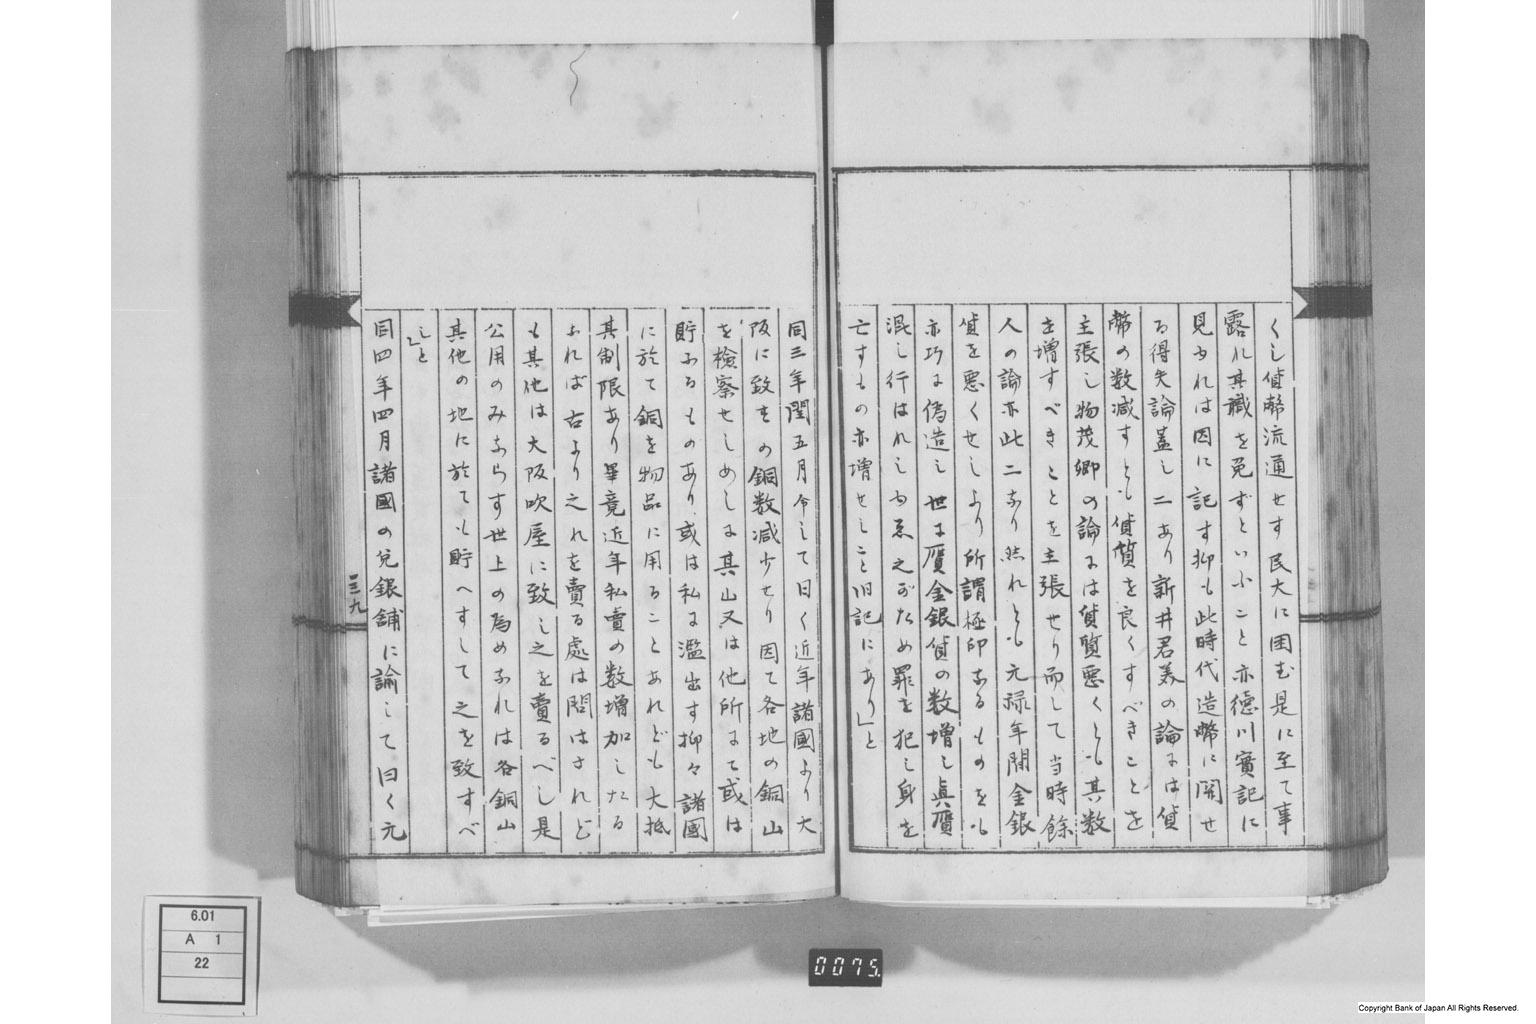 くし貨幣流通せす民大に困む是に至て事
露れ其職を免ずといふこと亦徳川實記に
見ゆれは因に記す抑も此時代造幣に関せ
る得失論蓋し二あり新井君美の論には貨
幣の数減すとも貨質を良くすべきことを
主張し物茂卿の論には貨質悪くとも其数
を増すべきことを主張せり而して当時餘
人の論亦此二なり然れとも元禄年間金銀
貨を悪くせしより所謂極印なるものをも
亦巧に偽造し世に贋金銀貨の数増し眞贋
混し行はれしゆゑ之がため罪を犯し身を
亡すもの亦増せしこと旧記にあり」と
同三年閏五月令して曰く近年諸國より大
阪に致すの銅数減少せり因て各地の銅山
を検察せしめしに其山又は他所にて或は
貯ふるものあり或は私に濫出す抑々諸國
に於て銅を物品に用ることあれども大抵
其制限あり畢竟近年私賣の数増加したる
なれば古より之れを賣る處は問はされど
も其他は大阪吹屋に致し之を賣るべし是
公用のみならす世上の為めなれは各銅山
其他の地に於ても貯へすして之を致すべ
し」と
同四年四月諸國の兌銀舗に諭して曰く元
三九
6.01
A 1
22
0075.
Copyright Bank of Japan All Rights Reserved.